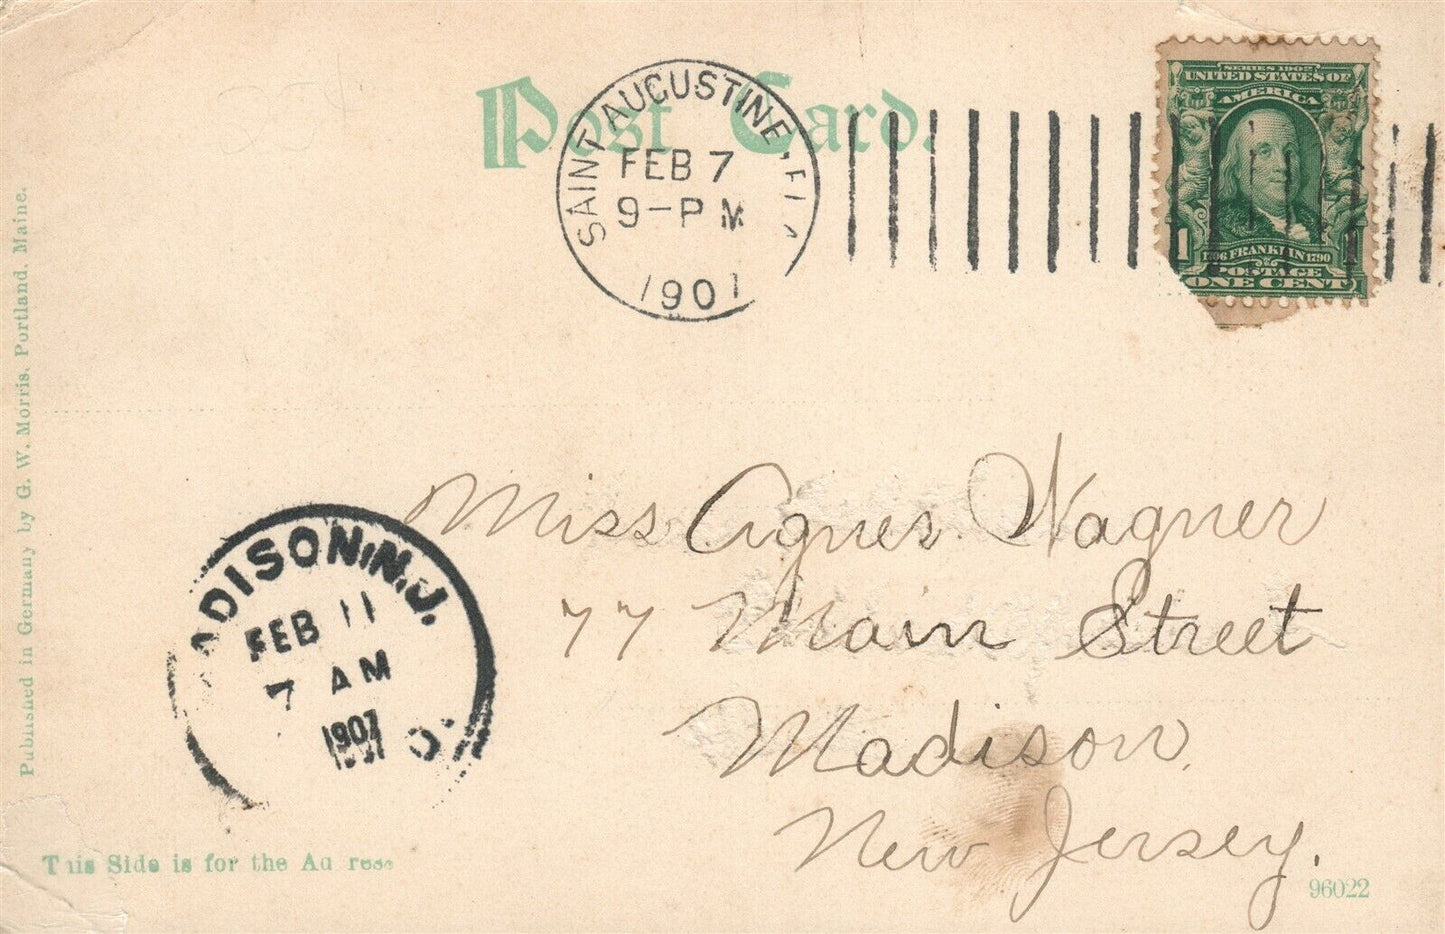 Post Card.
SAINT AUGUSTINE, FLA
FEB 7
9-PM
1907
SERIES 1902
UNITED STATES OF
AMERICA
1 1
1706 FRANKLIN 1790
POSTAGE
ONE CENT
Published in Germany by G. W. Morris, Portland, Maine.
Miss Agnes Wagner
77 Main Street
Madison,
New Jersey.
MADISON, N.J.
FEB 11
7 AM
1907
This Side is for the Address
96022